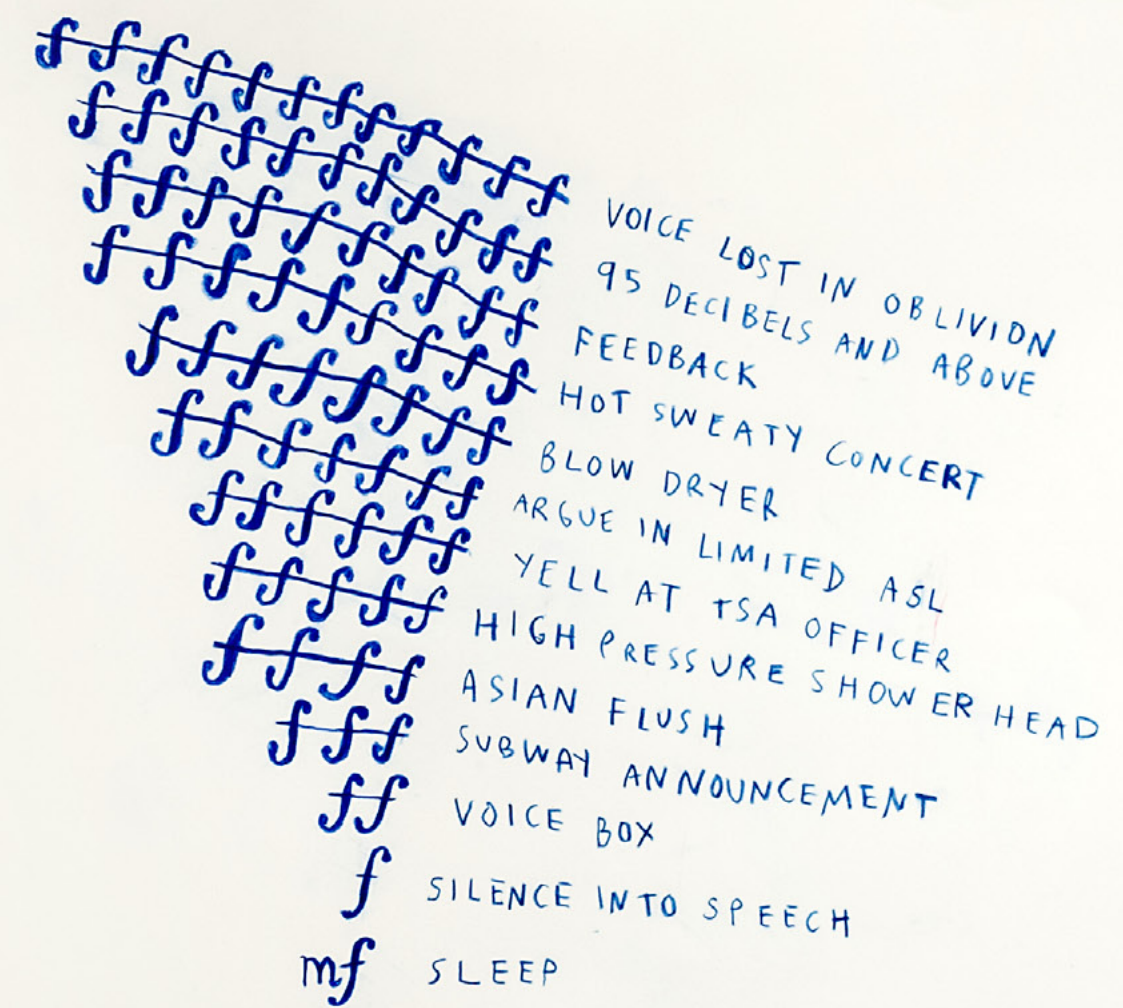 ffffffffffff VOICE LOST IN OBLIVION
fffffffffff 95 DECIBELS AND ABOVE
ffffffffff FEEDBACK
fffffffff HOT SWEATY CONCERT
ffffffff BLOW DRYER
fffffff ARGUE IN LIMITED ASL
ffffff YELL AT TSA OFFICER
fffff HIGH PRESSURE SHOWER HEAD
ffff ASIAN FLUSH
fff SUBWAY ANNOUNCEMENT
ff VOICE BOX
f SILENCE INTO SPEECH
mf SLEEP